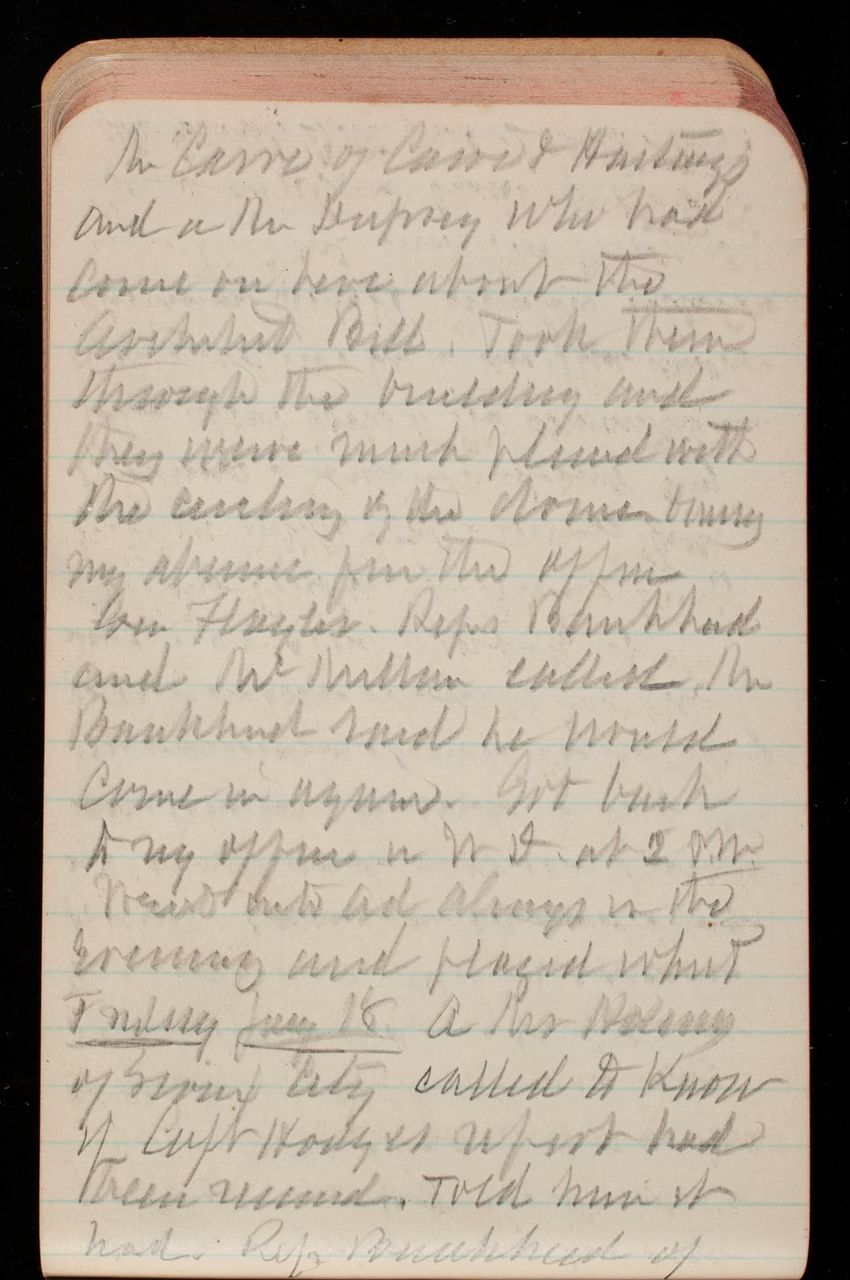 Mr Carre of Carre & Hastings
and a Mr Dempsey who had
come on here about the
Architect Bill. Took them
through the building and
they were much pleased with
the ceiling of the dome. During
my absence from the office
Gen Flagler. Reps Bankhead
and Mc Millan called. Mr
Bankhead said he would
come in again. Got back
to my office in W D. at 2 P.M.
Went into as always in the
Evening and played whist
Friday Jany 18. A Mr
of Sioux City called to know
if Capt Hodges report had
been received. Told him it
had. Rep Bankhead of